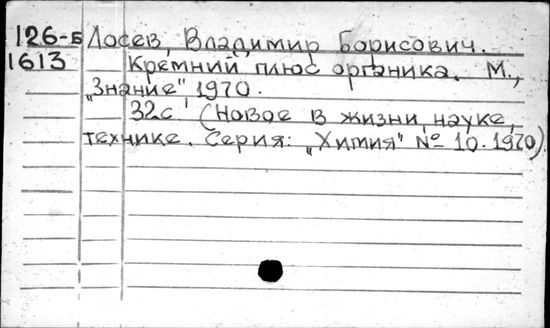 126-Б Лосев, Владимир Борисович.
1613 Кремний плюс органика. М.,
„Знание" 1970.
32с (Новое в жизни, науке,
технике. Серия: „Химия" № 10. 1970)